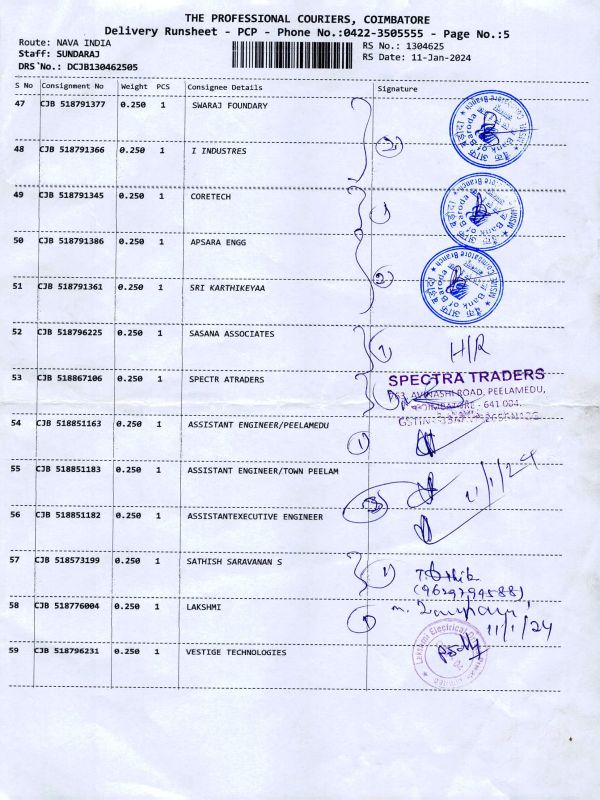 THE PROFESSIONAL COURIERS, COIMBATORE
Delivery Runsheet - PCP - Phone No.:0422-3505555 - Page No.:5
Route: NAVA INDIA
Staff: SUNDARAJ
DRS No.: DCJB130462505
RS No.: 1304625
RS Date: 11-Jan-2024
S No Consignment No Weight PCS Consignee Details Signature
47 CJB 518791377 0.250 1 SWARAJ FOUNDARY
48 CJB 518791366 0.250 1 I INDUSTRES
49 CJB 518791345 0.250 1 CORETECH
50 CJB 518791386 0.250 1 APSARA ENGG
51 CJB 518791361 0.250 1 SRI KARTHIKEYAA
52 CJB 518796225 0.250 1 SASANA ASSOCIATES H/R
53 CJB 518867106 0.250 1 SPECTR ATRADERS
SPECTRA TRADERS
AVINASHI ROAD, PEELAMEDU,
COIMBATORE - 641 004.
54 CJB 518851163 0.250 1 ASSISTANT ENGINEER/PEELAMEDU
55 CJB 518851183 0.250 1 ASSISTANT ENGINEER/TOWN PEELAM 11/1/24
56 CJB 518851182 0.250 1 ASSISTANTEXECUTIVE ENGINEER
57 CJB 518573199 0.250 1 SATHISH SARAVANAN S
58 CJB 518776004 0.250 1 LAKSHMI
11/1/24
59 CJB 518796231 0.250 1 VESTIGE TECHNOLOGIES
Bank of Baroda
MSME Coimbatore Branch
Bank of Baroda
MSME
Bank of Baroda
MSME Coimbatore Branch